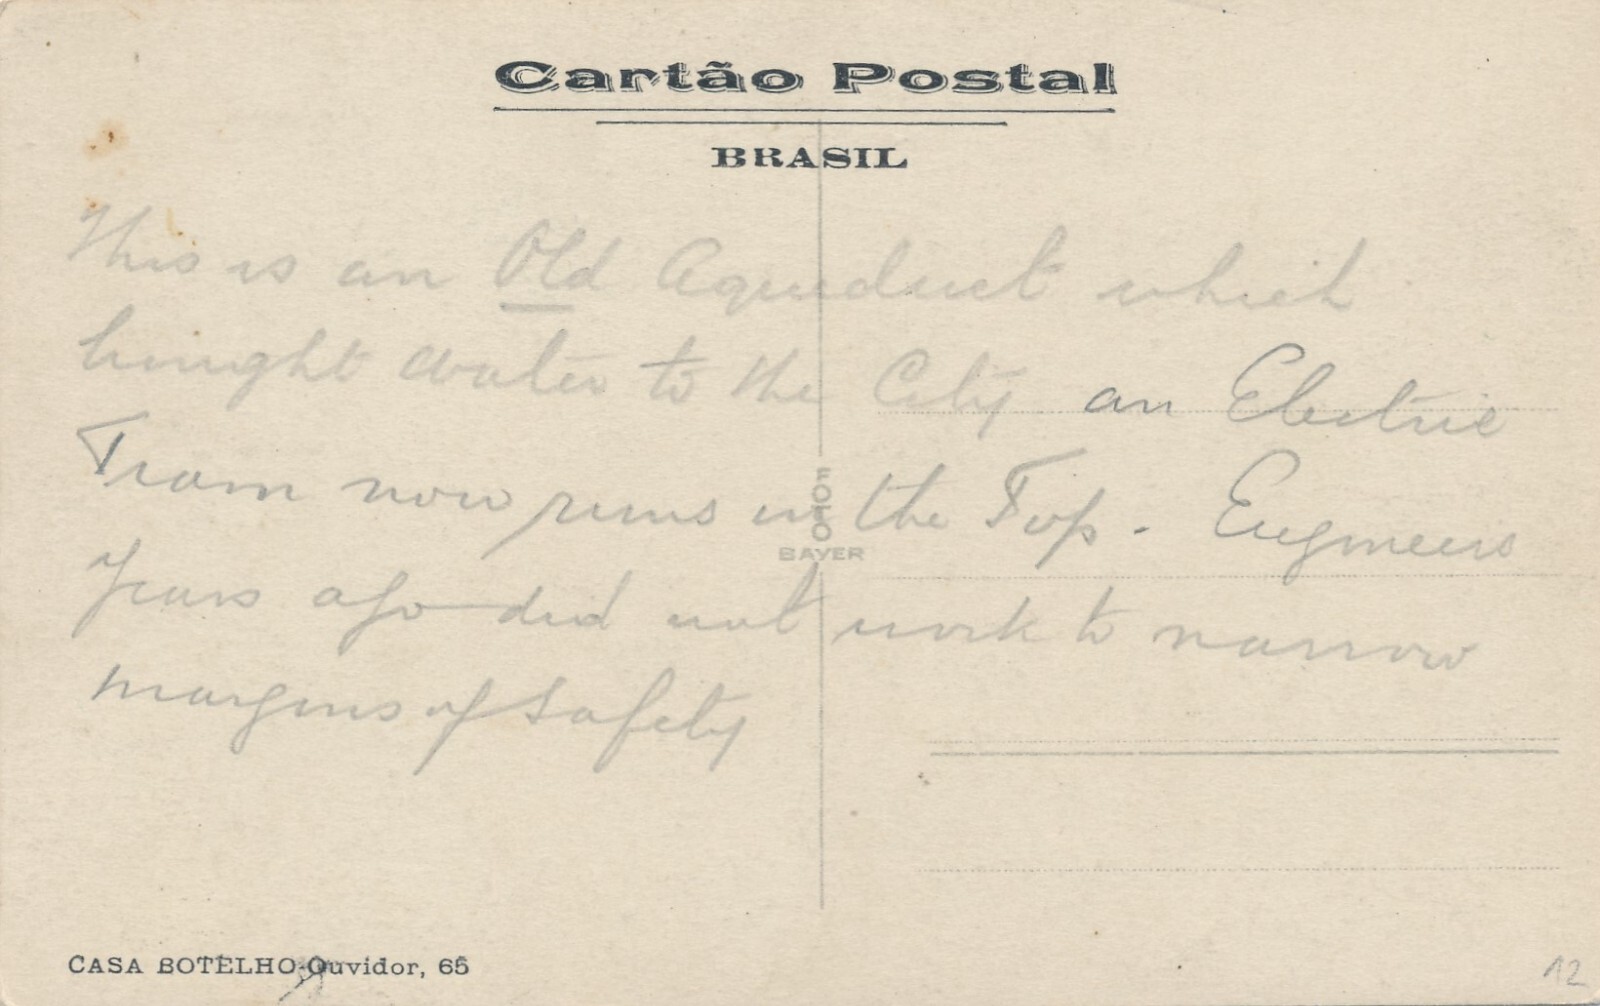 Cartão Postal
BRASIL
This is an Old Aqueduct which
brought water to the City an Electric
Tram now runs on the Top. Engineers
years ago did not work to narrow
margins of safety
FOTO
BAYER
CASA BOTELHO-Ouvidor, 65
12